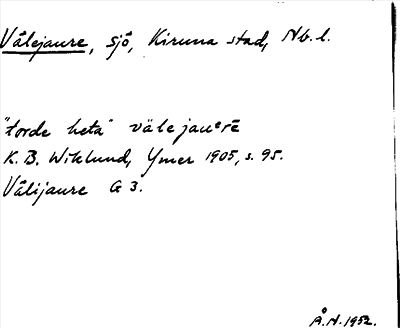 Välejaure, sjö, Kiruna stad, Nb. l.
"torde heta" välejauᵉrē
K. B. Wiklund, Ymer 1905, s. 95.
Välijaure G 3.
Å. N. 1952.